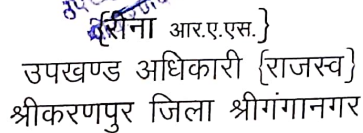 {रीना आर.ए.एस.}
उपखण्ड अधिकारी {राजस्व}
श्रीकरणपुर जिला श्रीगंगानगर